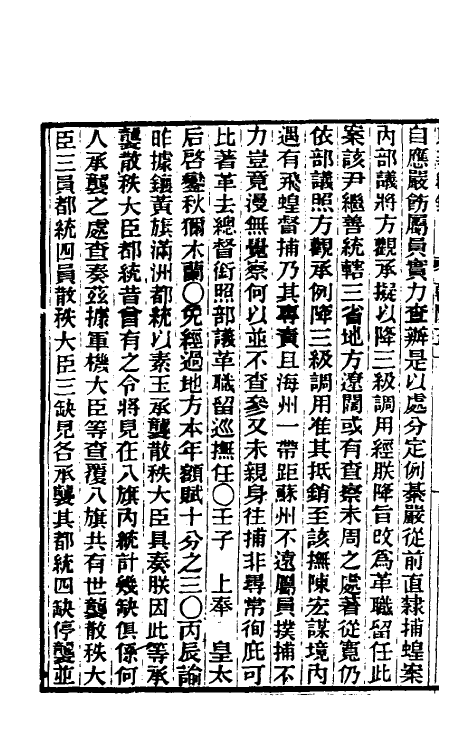 自應嚴飭屬員實力查辦是以處分定例綦嚴從前直隸捕蝗案
內部議將方觀承擬以降三級調用經朕降旨改為革職留任此
案該尹繼善統轄三省地方遼闊或有查察未周之處著從寬仍
依部議照方觀承例降三級調用准其抵銷至該撫陳宏謀境內
遇有飛蝗督捕乃其專責且海州一帶距蘇州不遠屬員撲捕不
力豈竟漫無覺察何以並不查參又未親身往捕非尋常徇庇可
比著革去總督銜照部議革職留巡撫任〇壬子　上奉　皇太
后啓鑾秋獮木蘭〇免經過地方本年額賦十分之三〇丙辰諭
昨據鑲黃旗滿洲都統以素玉承襲散秩大臣具奏朕因此等承
襲散秩大臣都統昔曾有之令將見在八旗內統計幾缺俱係何
人承襲之處查奏茲據軍機大臣等查覆八旗共有世襲散秩大
臣三員都統四員散秩大臣三缺見各承襲其都統四缺停襲並